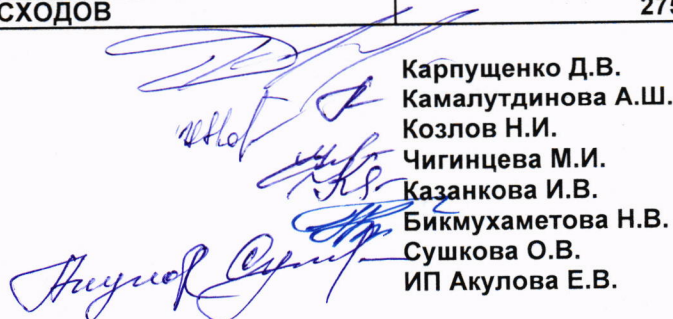 СХОДОВ 275
Карпущенко Д.В.
Камалутдинова А.Ш.
Козлов Н.И.
Чигинцева М.И.
Казанкова И.В.
Бикмухаметова Н.В.
Сушкова О.В.
ИП Акулова Е.В.